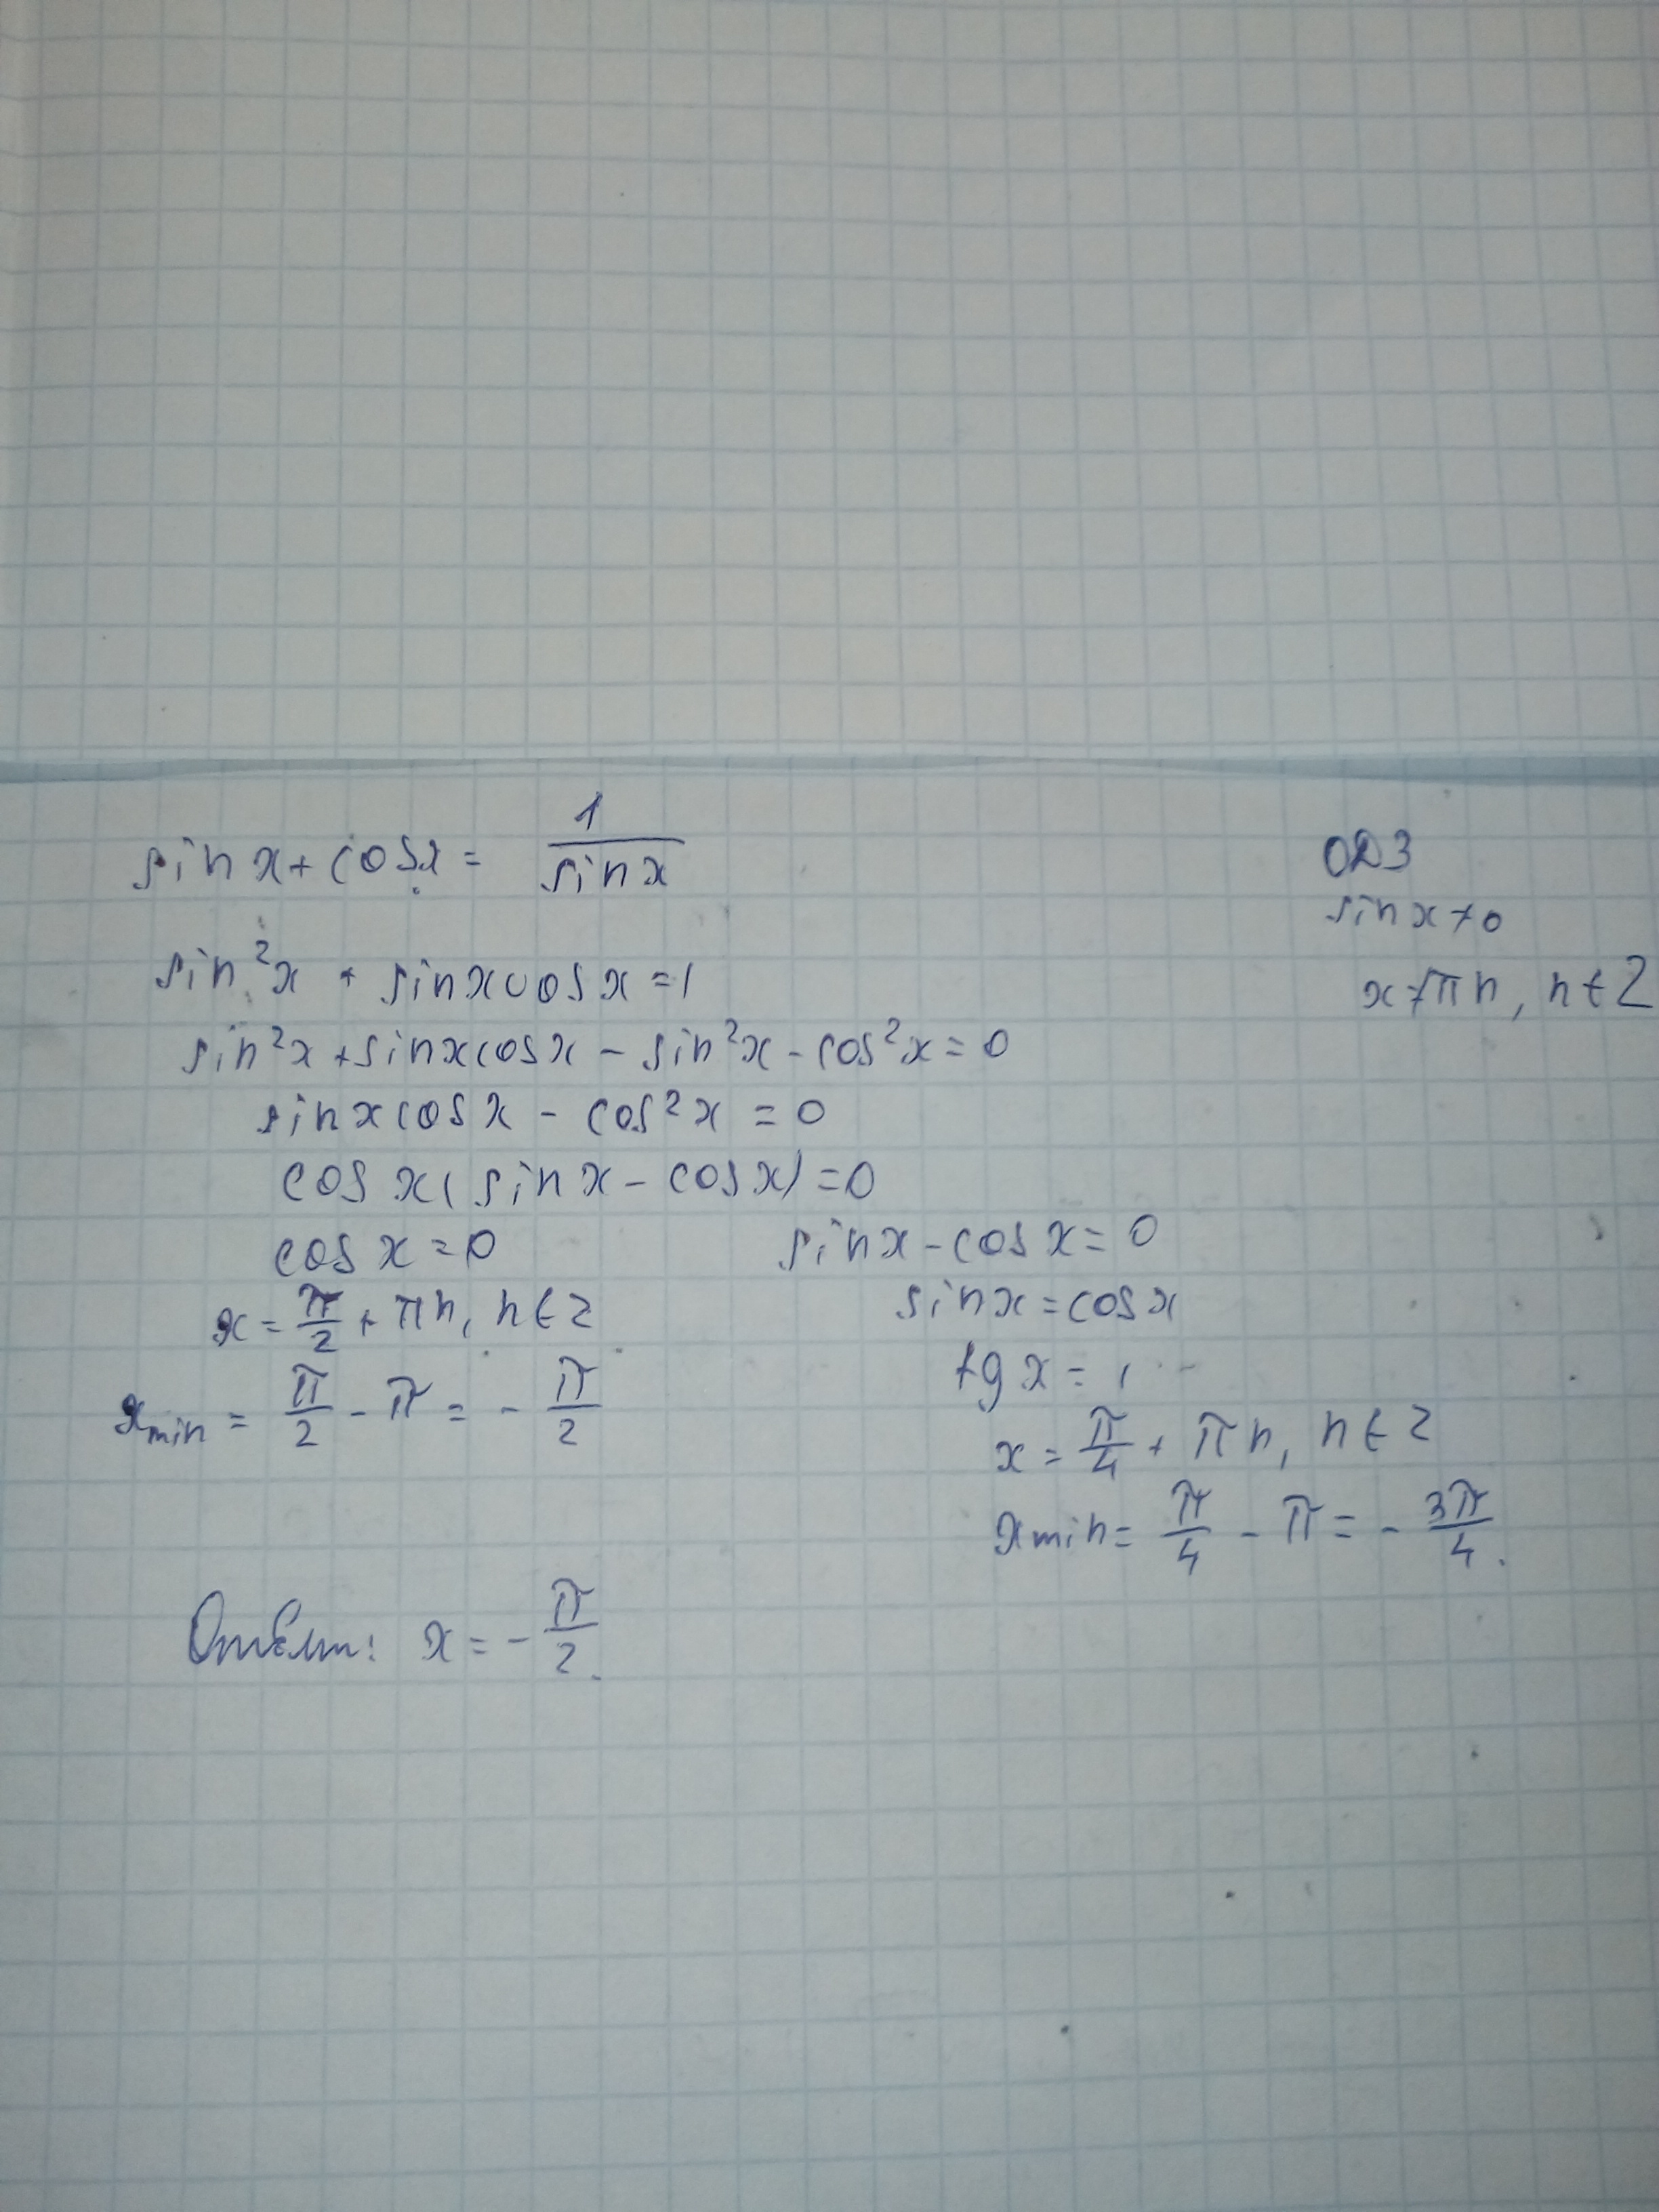 sin x + cos x = 1/sin x
ОДЗ
sin x ≠ 0
x ≠ πn, n ∈ Z
sin²x + sin x cos x = 1
sin²x + sin x cos x - sin²x - cos²x = 0
sin x cos x - cos²x = 0
cos x (sin x - cos x) = 0
cos x = 0
x = π/2 + πn, n ∈ Z
x min = π/2 - π = - π/2
sin x - cos x = 0
sin x = cos x
tg x = 1
x = π/4 + πn, n ∈ Z
x min = π/4 - π = - 3π/4.
Ответ: x = - π/2.